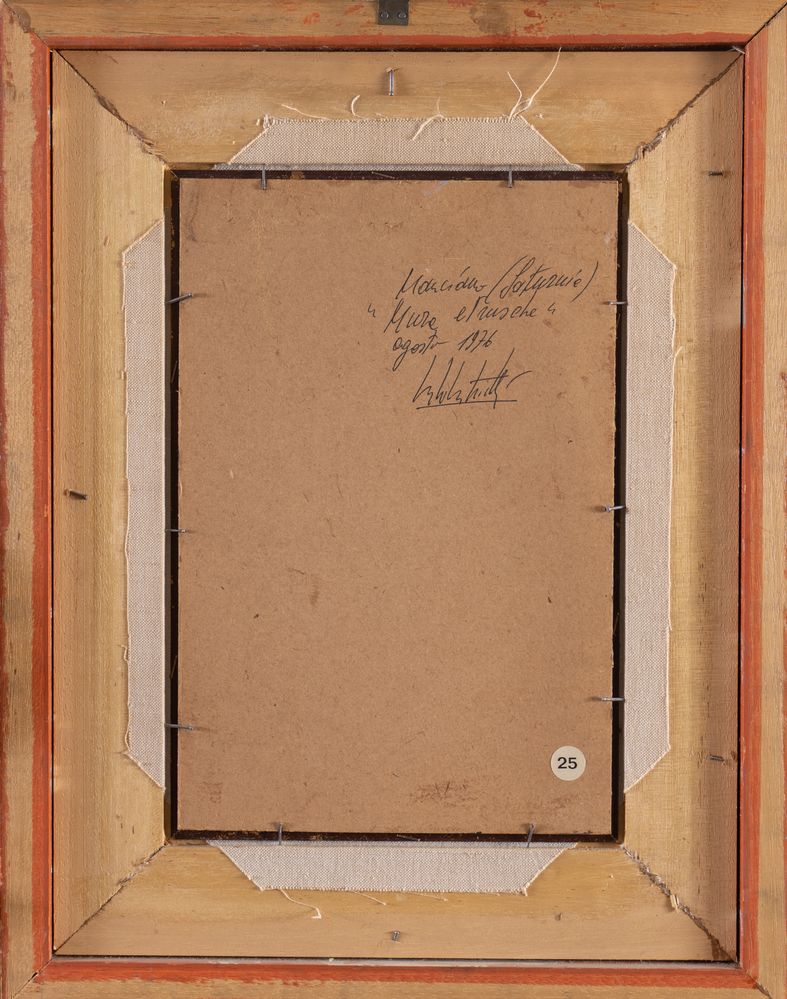 Manciano (Saturnia)
"Mura etrusche"
agosto 1976
25